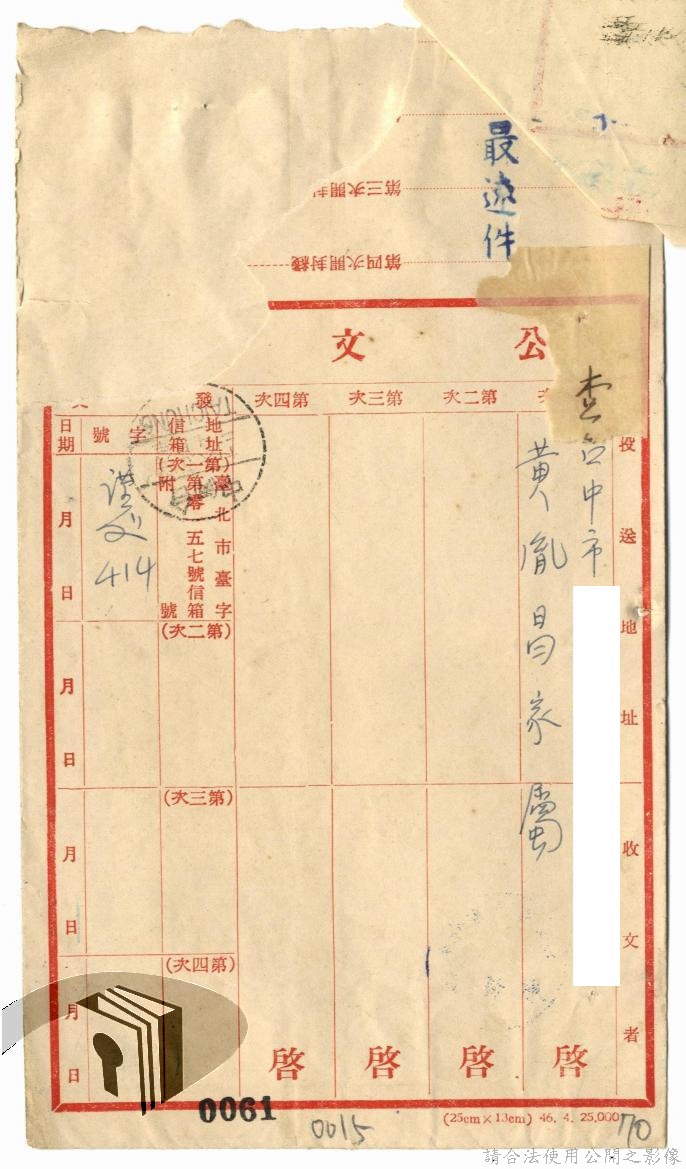 最速件
第三次開封
第四次開封綫
公文
第二次
第三次
第四次
發
投送地址
收文者
台中市
黃胤昌家屬
啓
啓
啓
啓
地址
信箱
字號
日期
(第一次)
臺北市臺字
第零五七號信箱
附
號
414
月
日
(第二次)
月
日
(第三次)
月
日
(第四次)
月
日
0061
0015
(25cm×13cm) 46. 4. 25,000
70
請合法使用公開之影像